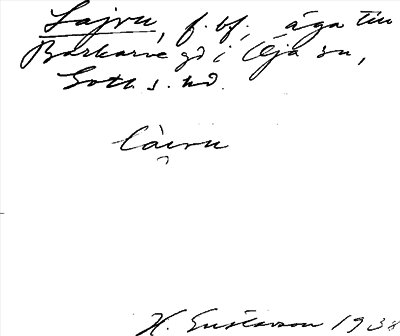 Lajvu, f. bf., äga till
Barkarve gd i Öja sn,
Gotl. s. hd.
làivu
H. Gustavson 1938